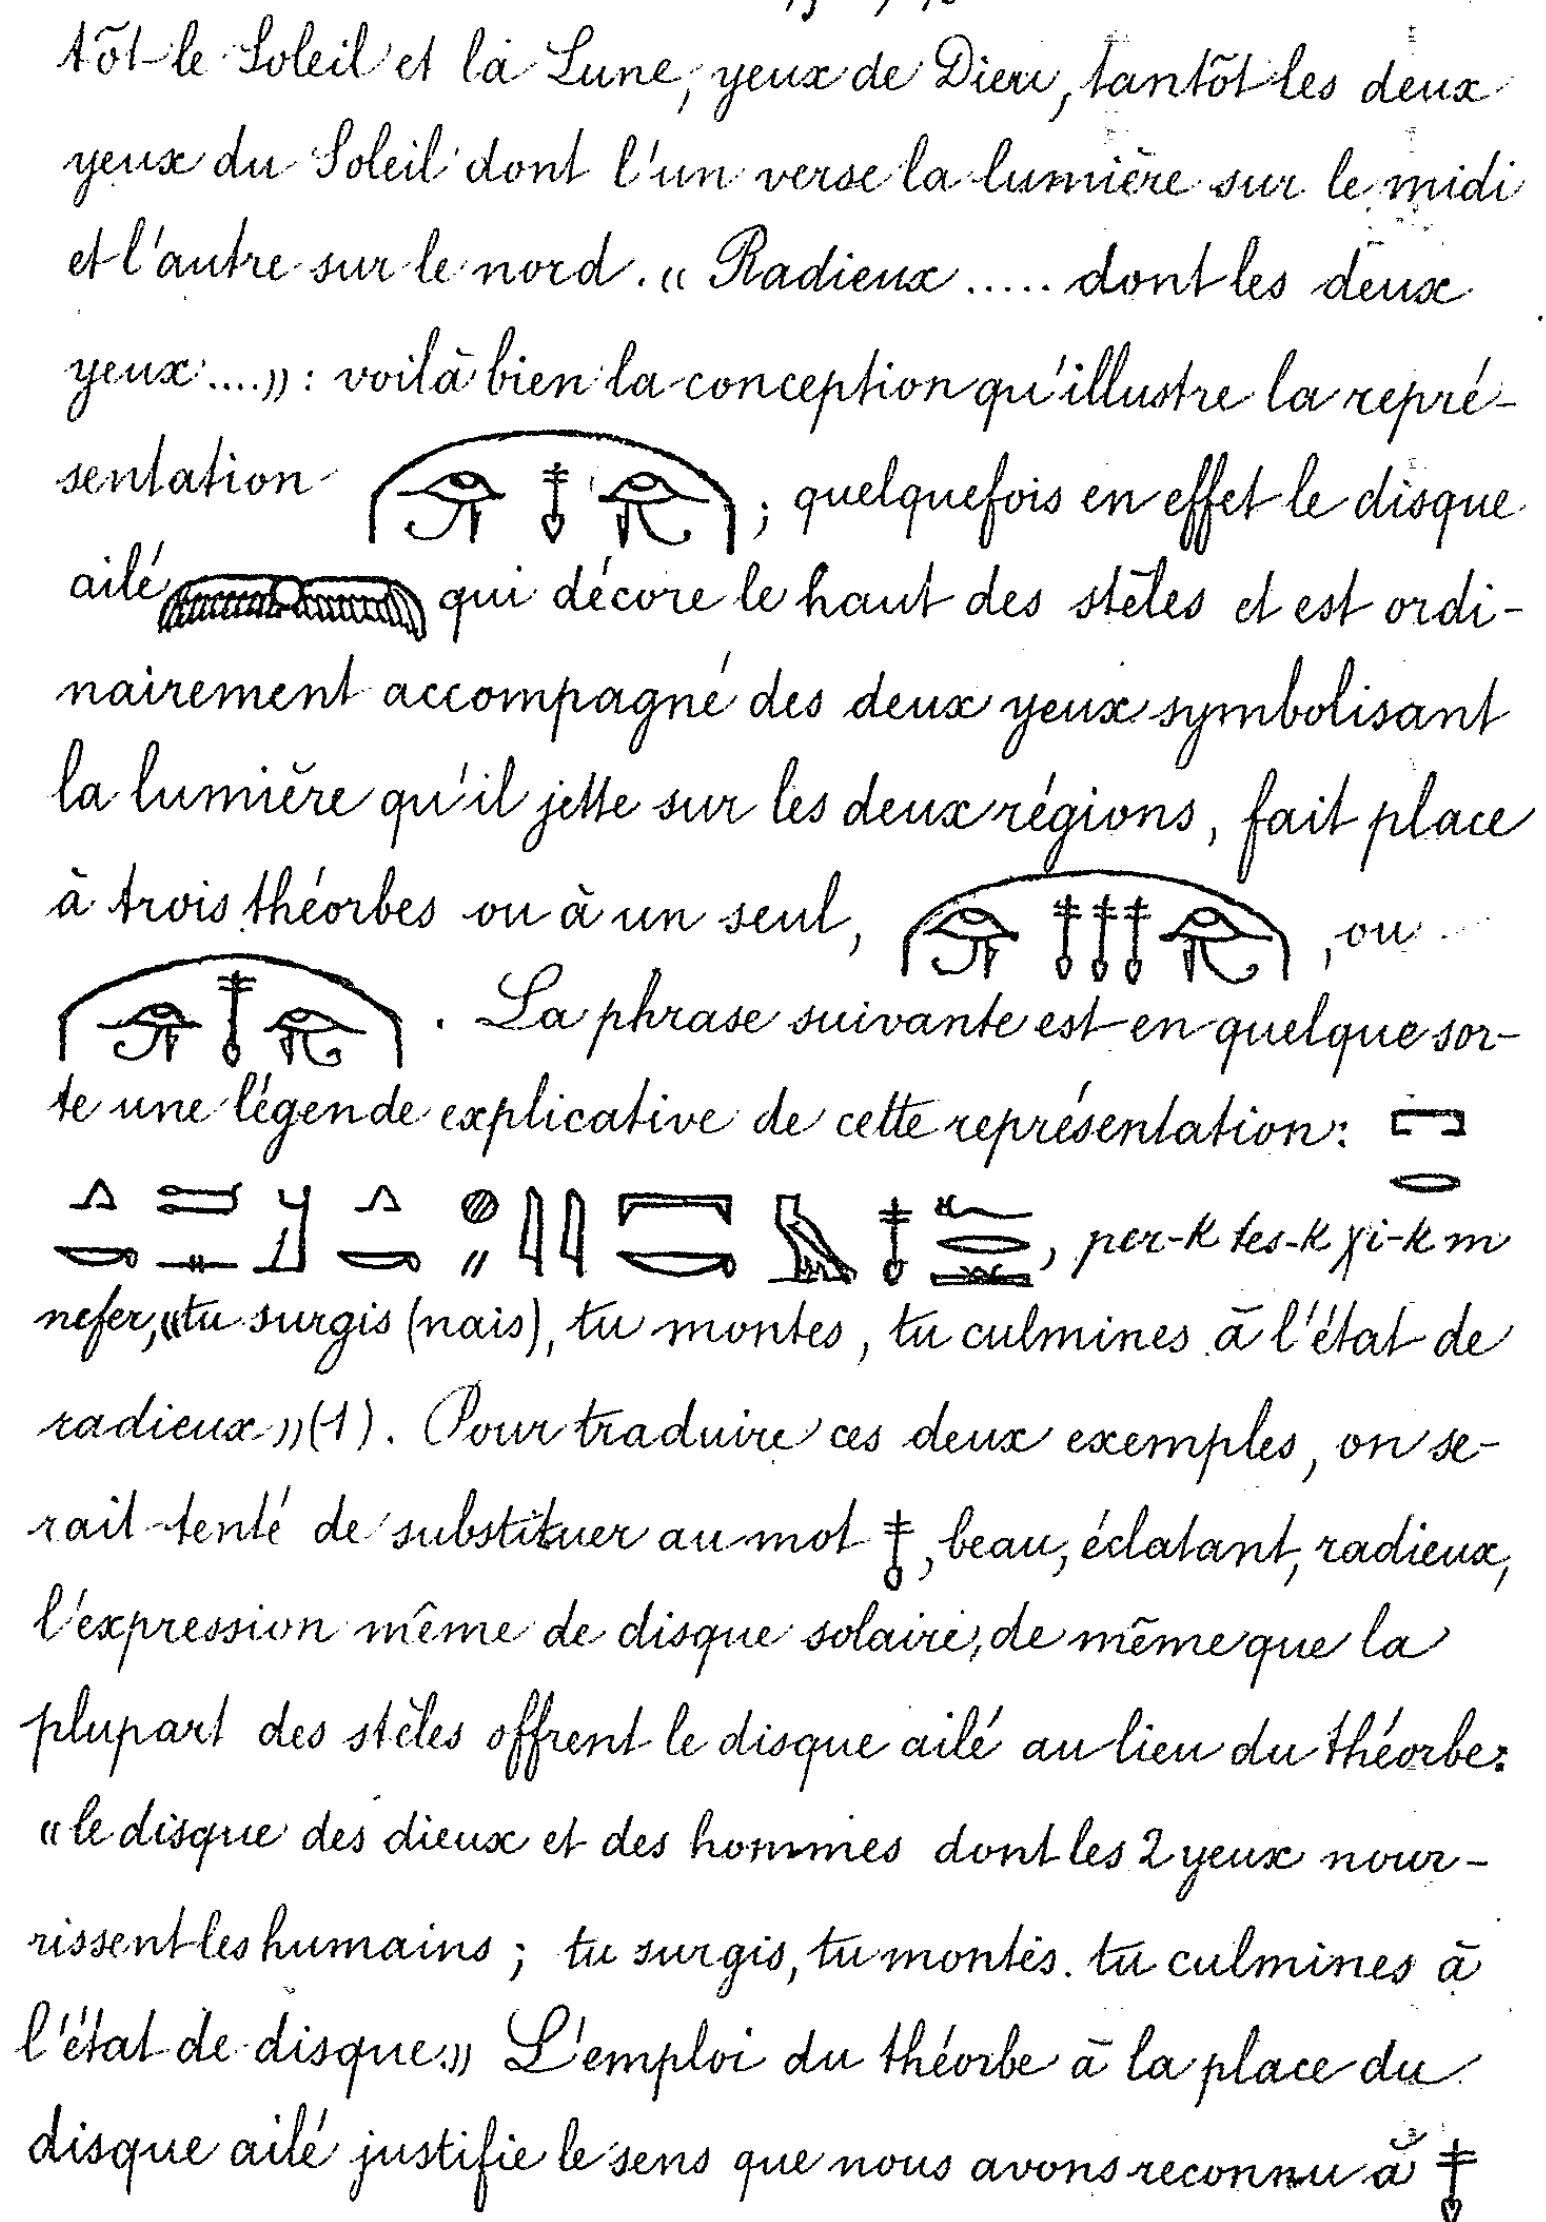 tôt le Soleil et la Lune, yeux de Dieu, tantôt les deux
yeux du Soleil dont l'un verse la lumière sur le midi
et l'autre sur le nord. « Radieux ..... dont les deux
yeux ....» : voilà bien la conception qu'illustre la repré-
sentation ; quelquefois en effet le disque
ailé qui décore le haut des stèles et est ordi-
nairement accompagné des deux yeux symbolisant
la lumière qu'il jette sur les deux régions, fait place
à trois théorbes ou à un seul, , ou
. La phrase suivante est en quelque sor-
te une légende explicative de cette représentation:
, per-k tes-k χi-k m
nefer, «tu surgis (nais), tu montes, tu culmines à l'état de
radieux» (1). Pour traduire ces deux exemples, on se-
rait tenté de substituer au mot 𓄤, beau, éclatant, radieux,
l'expression même de disque solaire, de même que la
plupart des stèles offrent le disque ailé au lieu du théorbe:
«le disque des dieux et des hommes dont les 2 yeux nour-
rissent les humains ; tu surgis, tu montes. tu culmines à
l'état de disque.» L'emploi du théorbe à la place du
disque ailé justifie le sens que nous avons reconnu à 𓄤